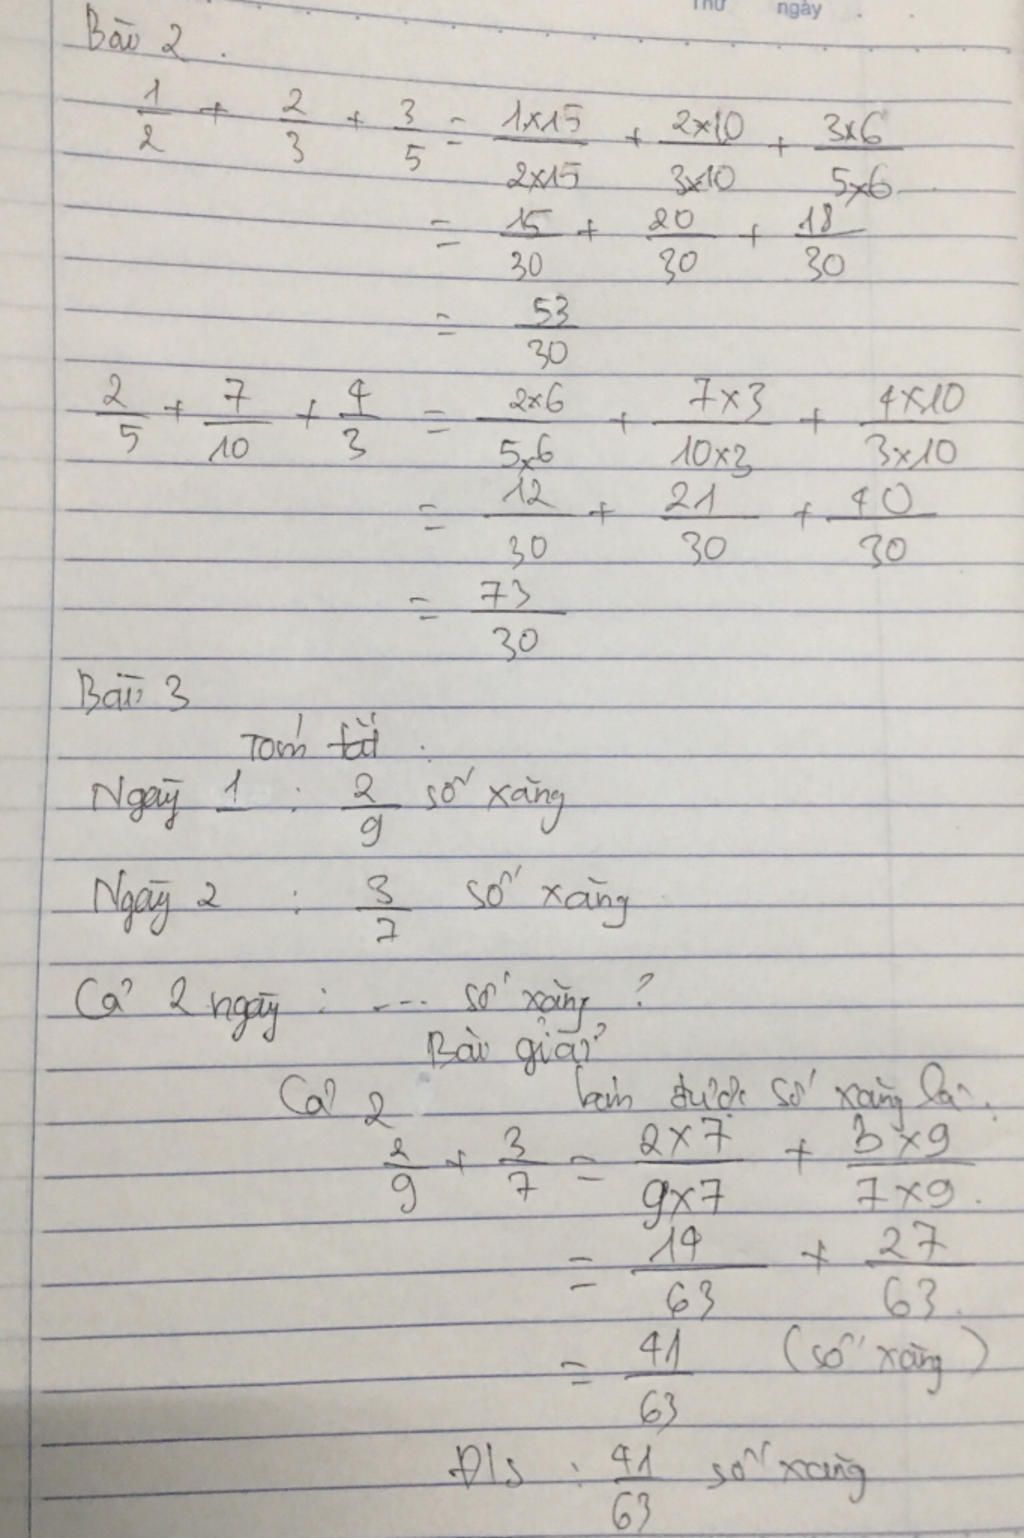 Thứ ngày
Bài 2.
1/2 + 2/3 + 3/5 = 1x15/2x15 + 2x10/3x10 + 3x6/5x6
= 15/30 + 20/30 + 18/30
= 53/30
2/5 + 7/10 + 4/3 = 2x6/5x6 + 7x3/10x3 + 4x10/3x10
= 12/30 + 21/30 + 40/30
= 73/30
Bài 3
Tóm tắt.
Ngày 1 : 2/9 số xăng
Ngày 2 : 3/7 số xăng
Cả 2 ngày : .... số xăng ?
Bài giải
Cả 2 bán được số xăng là:
2/9 + 3/7 = 2x7/9x7 + 3x9/7x9
= 14/63 + 27/63
= 41/63 (số xăng)
Đ/s : 41/63 số xăng